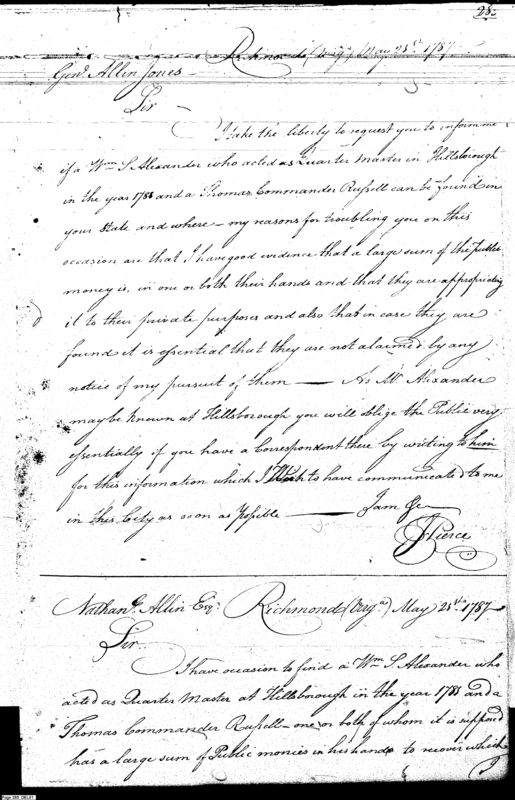 25.
Richmond (Virga) May 25th 1787
Genl. Allin Jones
Sir
I take the liberty to request you to inform me
if a Wm S Alexander who acted as Quarter Master in Hillsborough
in the year 1781 and a Thomas Commander Russell can be found in
your State and where – my reasons for troubling you on this
occasion are that I have good evidence that a large sum of the Public
money is, in one or both their hands and that they are appropriating
it to their private purposes and also that in case they are
found it is essential that they are not alarmed by any
notice of my pursuit of them — As Mr Alexander
may be known at Hillsborough you will oblige the Public very
essentially if you have a Correspondent there by writing to him
for this information which I Wish to have communicated to me
in this City as soon as Possible — I am &c
J Pierce
Nathanl. Allin Esqr. Richmond (Virga) May 25th 1787
Sir.
I have occasion to find a Wm S Alexander who
acted as Quarter Master at Hillsborough in the year 1781 and a
Thomas Commander Russell – one or both of whom it is supposed
has a large sum of Public monies in his hands to recover which
I